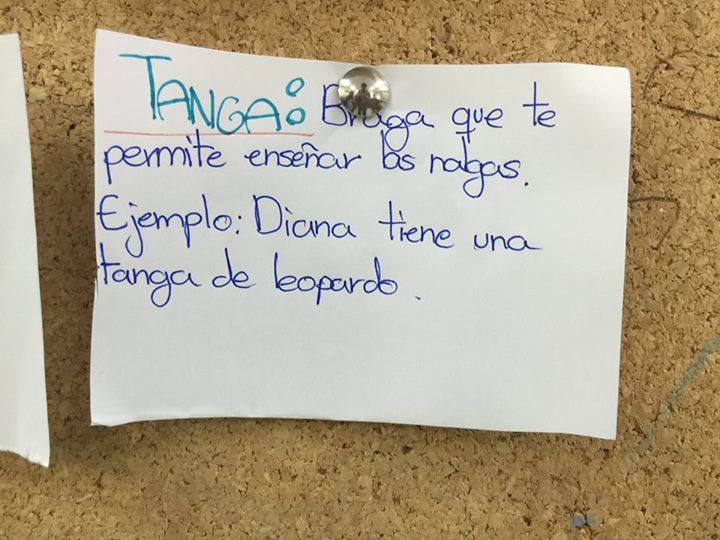 TANGA: Braga que te
permite enseñar las nalgas.
Ejemplo: Diana tiene una
tanga de leopardo.